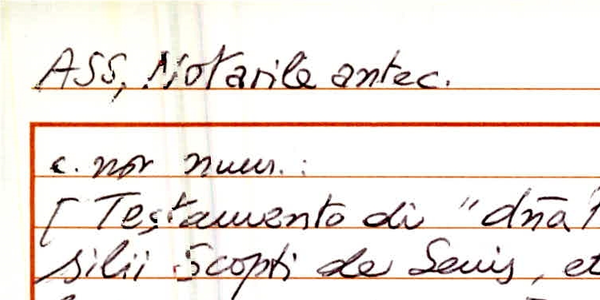 ASS, Notarile antec.
c. non num.:
[ Testamento di "dn̄a"
silii Scopti de Senis, et